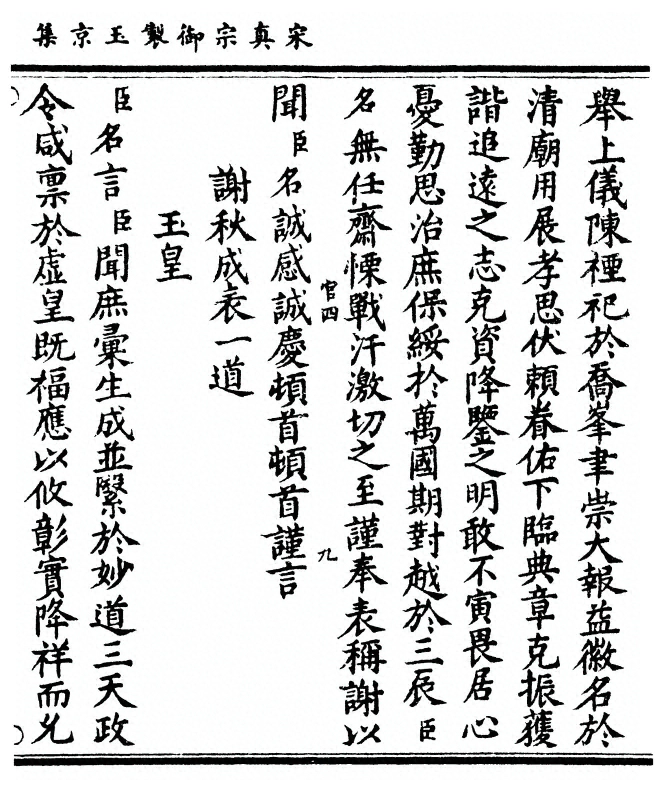 宋真宗御製玉京集
舉上儀陳禋祀於喬峯聿崇大報益徽名於
清廟用展孝思伏賴眷佑下臨典章克振獲
諧追遠之志克資降鑒之明敢不寅畏居心
憂勤思治庶保綏於萬國期對越於三辰臣
名無任齋慄戰汗激切之至謹奉表稱謝以
官四 九
聞臣名誠感誠慶頓首頓首謹言
謝秋成表一道
玉皇
臣名言臣聞庶彙生成並繄於妙道三天政
令咸禀於虛皇既福應以攸彰實降祥而允